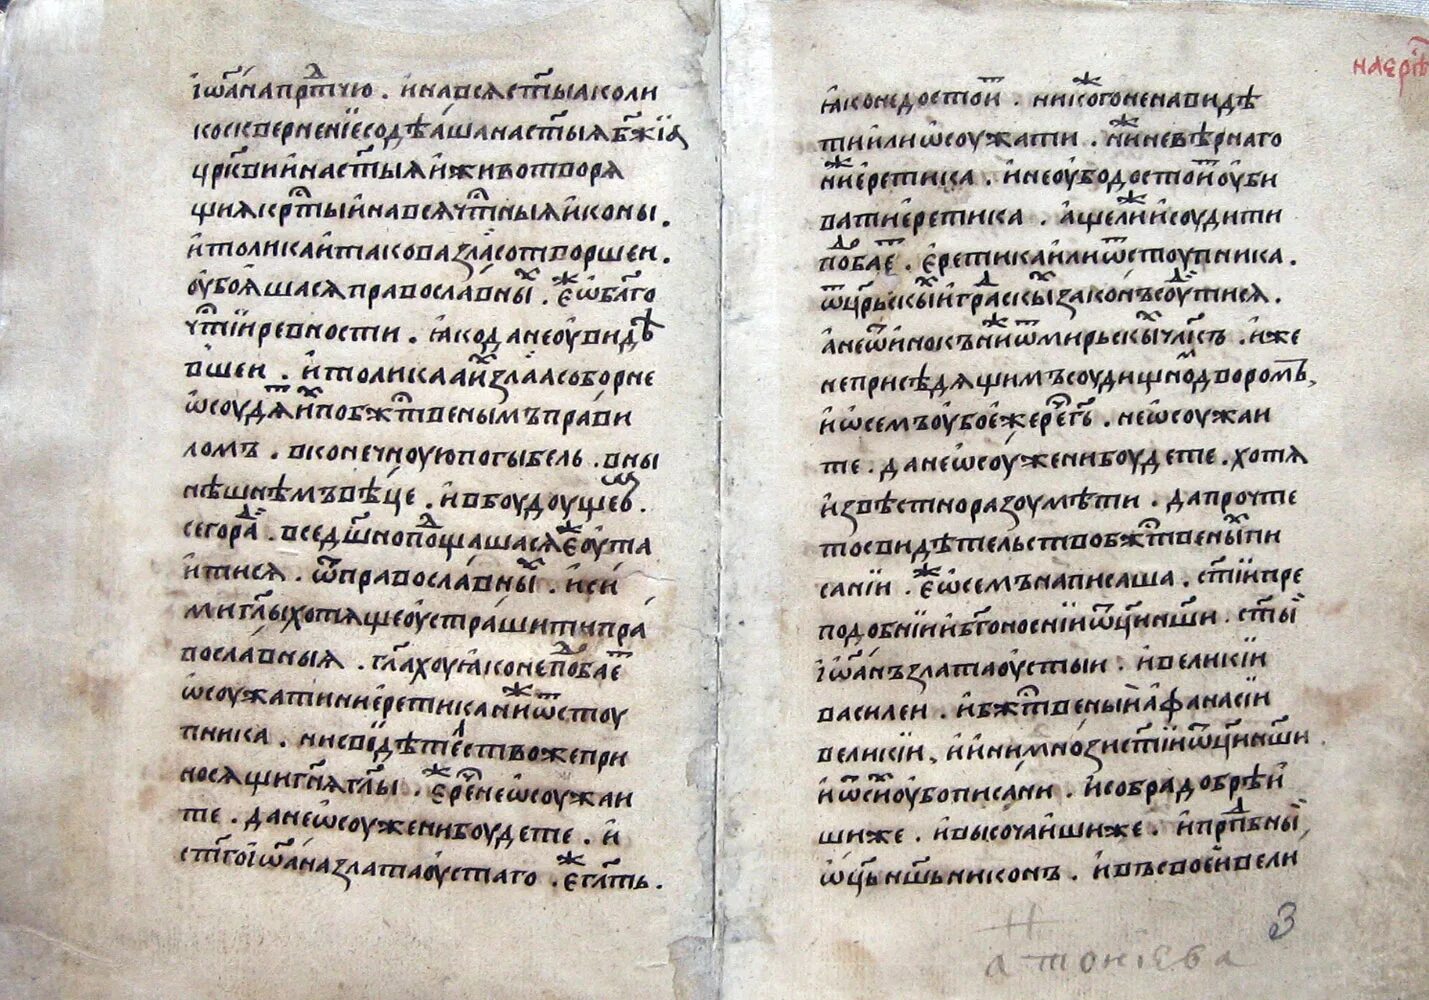 їѡ҃анапрⷣтчю . инавсястⷭ҇ыаколи
коскверненїесодѣашанастⷭ҇ыябж҃їа
цр҃квиинастⷭ҇ыяиживотворя
щиякрⷭ҇тыинавсячтⷭ҇ныяиконы .
итоликаитаковазласотворшеи .
оубоашасяправославныⷯ . еⷤѡблг҃о
чтⷭ҇їиревности . ꙗкоданеоувидѣ
вшеи . итоликааиⷯзлаасоборне
ѡсоудяⷮиⷯпобжтⷭ҇венымъправи
ломъ . вконечноуюпогыбель . вны
нѣшнѣмъвѣце . ивбоудоущеⷨв .
сегораⷣ . вседш҃нопоⷣщашасяеⷤоута
итися . ѿправославныⷯ . иси
миглⷶ҇ыхотящеоустрашитипра
вославныя . гл҃ахоуꙗконепоⷣбаеⷮ
ѡсоужатиниеретиканиⷤѿстоу
пника . нисвїдѣтеⷧствожепри
носящигн҃ягл҃ы . еⷤреⷱ҇неѡсоужаи
те . данеѡсоуженибоудете . и
ст҃гоїѡ҃аназлатаоустаго . еⷤгл҃ть .
наерїⷮ
ꙗконедостоиⷮ . никоⷤгоненавидѣ
тииилиѡсоужати . ниⷤневѣрнаго
ниⷤеретика . инеоубодостоиⷮоуби
ватиеретика . ащелиⷤисоудити
поⷣбаеⷮ . еретикаилиѿстоупника .
ѿцр҃ьскыⷯиграⷣскыⷯзаконъсоуⷣтися .
анеѿинокъниⷤѿмирьскыⷯчл҃къ . иже
неприсѣдящимъсоудищноⷨдворомъ ,
иѡсемъоубоежереⷱ҇гь . неѡсоужаи
те . данеѡсоуженибоудете . хотя
извѣстноразоумѣти . дапрочте
тосвидѣтельствобжтⷭ҇веныⷯпи
санїи . еⷤѡсемънаписаша . ст҃їипре
подобнїиибг҃оноснїиѿц҃инш҃и . ст҃ыи
їѡ҃анъзлатаоустыи . ивеликїи
василеи . ибжтⷭ҇веныиафанасїи
великїи . иинимнозист҃їиѿц҃инш҃и .
иѿсиⷯоубописани . исобрадобрѣи
шиже . ивысочаишиже . ипрпⷣбныи
ѡц҃ьнш҃ьниконъ . ивъсвоеивели
З
атонїева